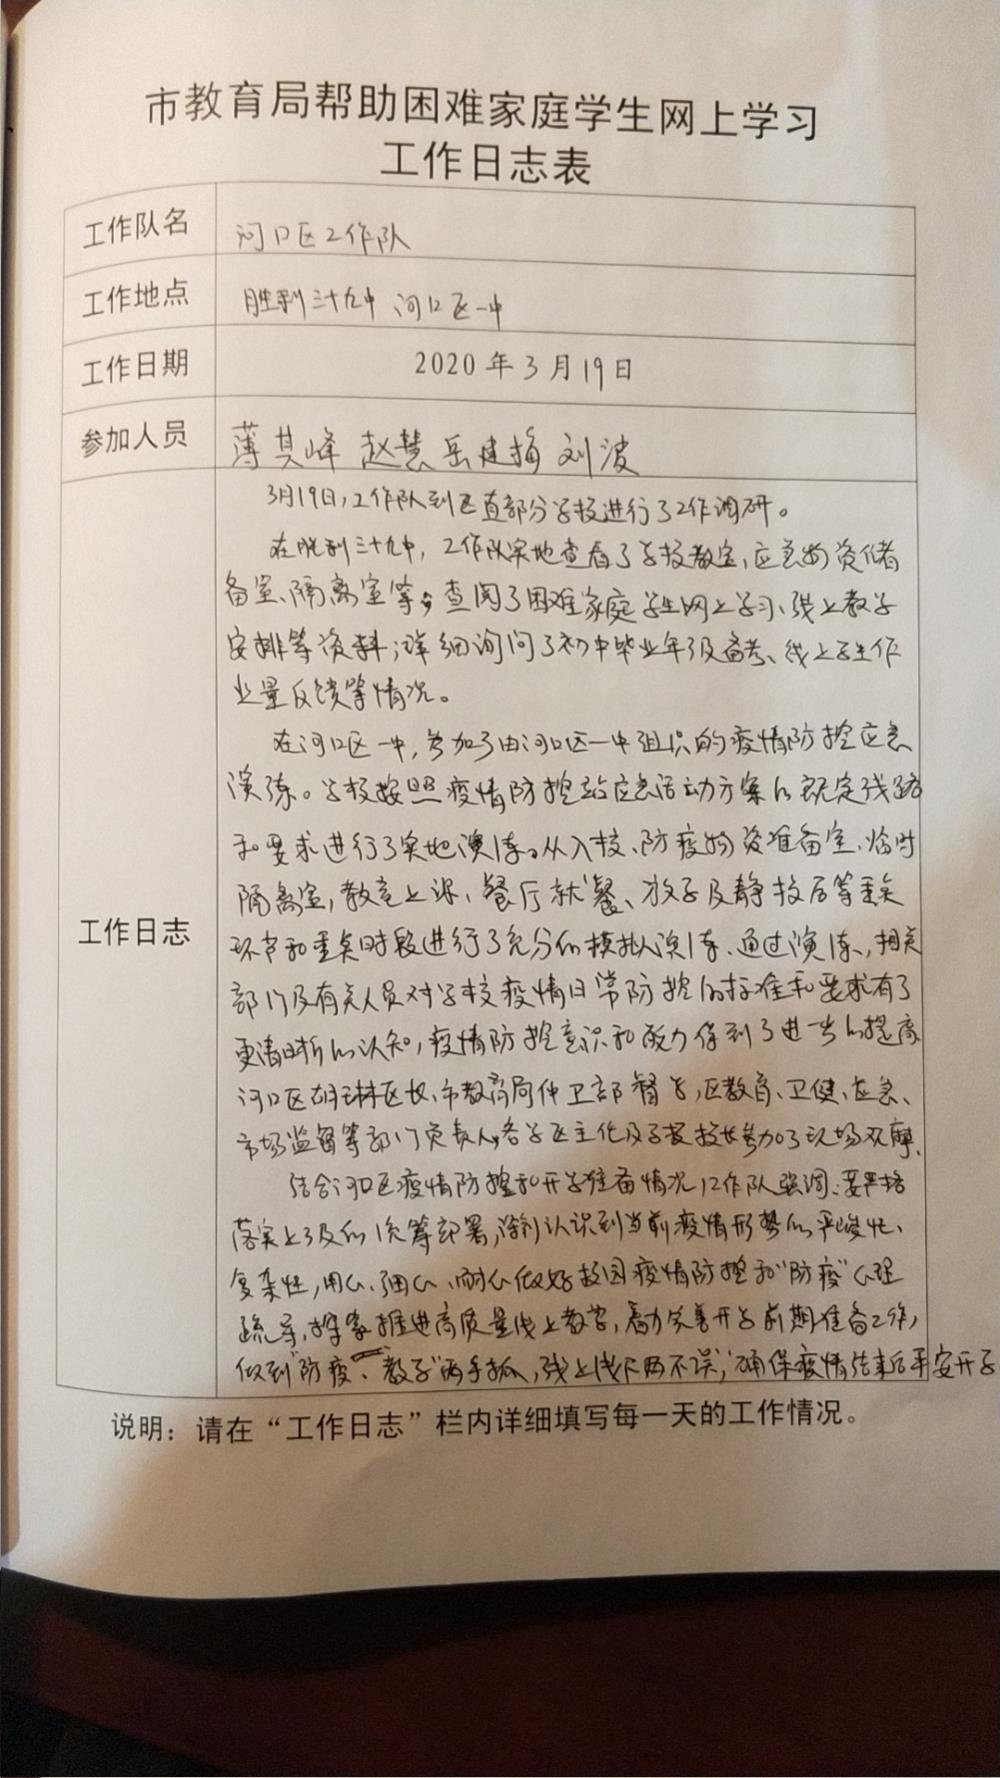 市教育局帮助困难家庭学生网上学习
工作日志表
工作队名 河口区工作队
工作地点 胜利三十九中 河口区一中
工作日期 2020年3月19日
参加人员 薄其峰 赵慧 岳建梅 刘波
工作日志
3月19日,工作队到区直部分学校进行了工作调研。
在胜利三十九中,工作队实地查看了学校教室、应急物资储
备室、隔离室等,查阅了困难家庭学生网上学习、线上教学
安排等资料,详细询问了初中毕业年级备考、线上学生作
业量反馈等情况。
在河口区一中,参加了由河口区一中组织的疫情防控应急
演练。学校按照疫情防控应急活动方案的既定线路
和要求进行了实地演练。从入校、防疫物资准备室、临时
隔离室,教室上课、餐厅就餐、放学及静校后等重点
环节和重点时段进行了充分的模拟演练、通过演练,相关
部门及有关人员对学校疫情日常防控的标准和要求有了
更清晰的认知,疫情防控意识和能力得到了进一步的提高
河口区胡琳区长、市教育局体卫部督学,区教育、卫健、应急、
市场监督等部门负责人,各学区主任及学校校长参加了现场观摩,
结合河口区疫情防控和开学准备情况,工作队强调:要严格
落实上级的统筹部署,深刻认识到当前疫情形势的严峻性、
复杂性,用心、细心、耐心做好校园疫情防控和“防疫”心理
疏导,探索推进高质量线上教学,着力完善开学前期准备工作,
做到“防疫、教学”两手抓,线上线下两不误,确保疫情结束后平安开学
说明:请在“工作日志”栏内详细填写每一天的工作情况。